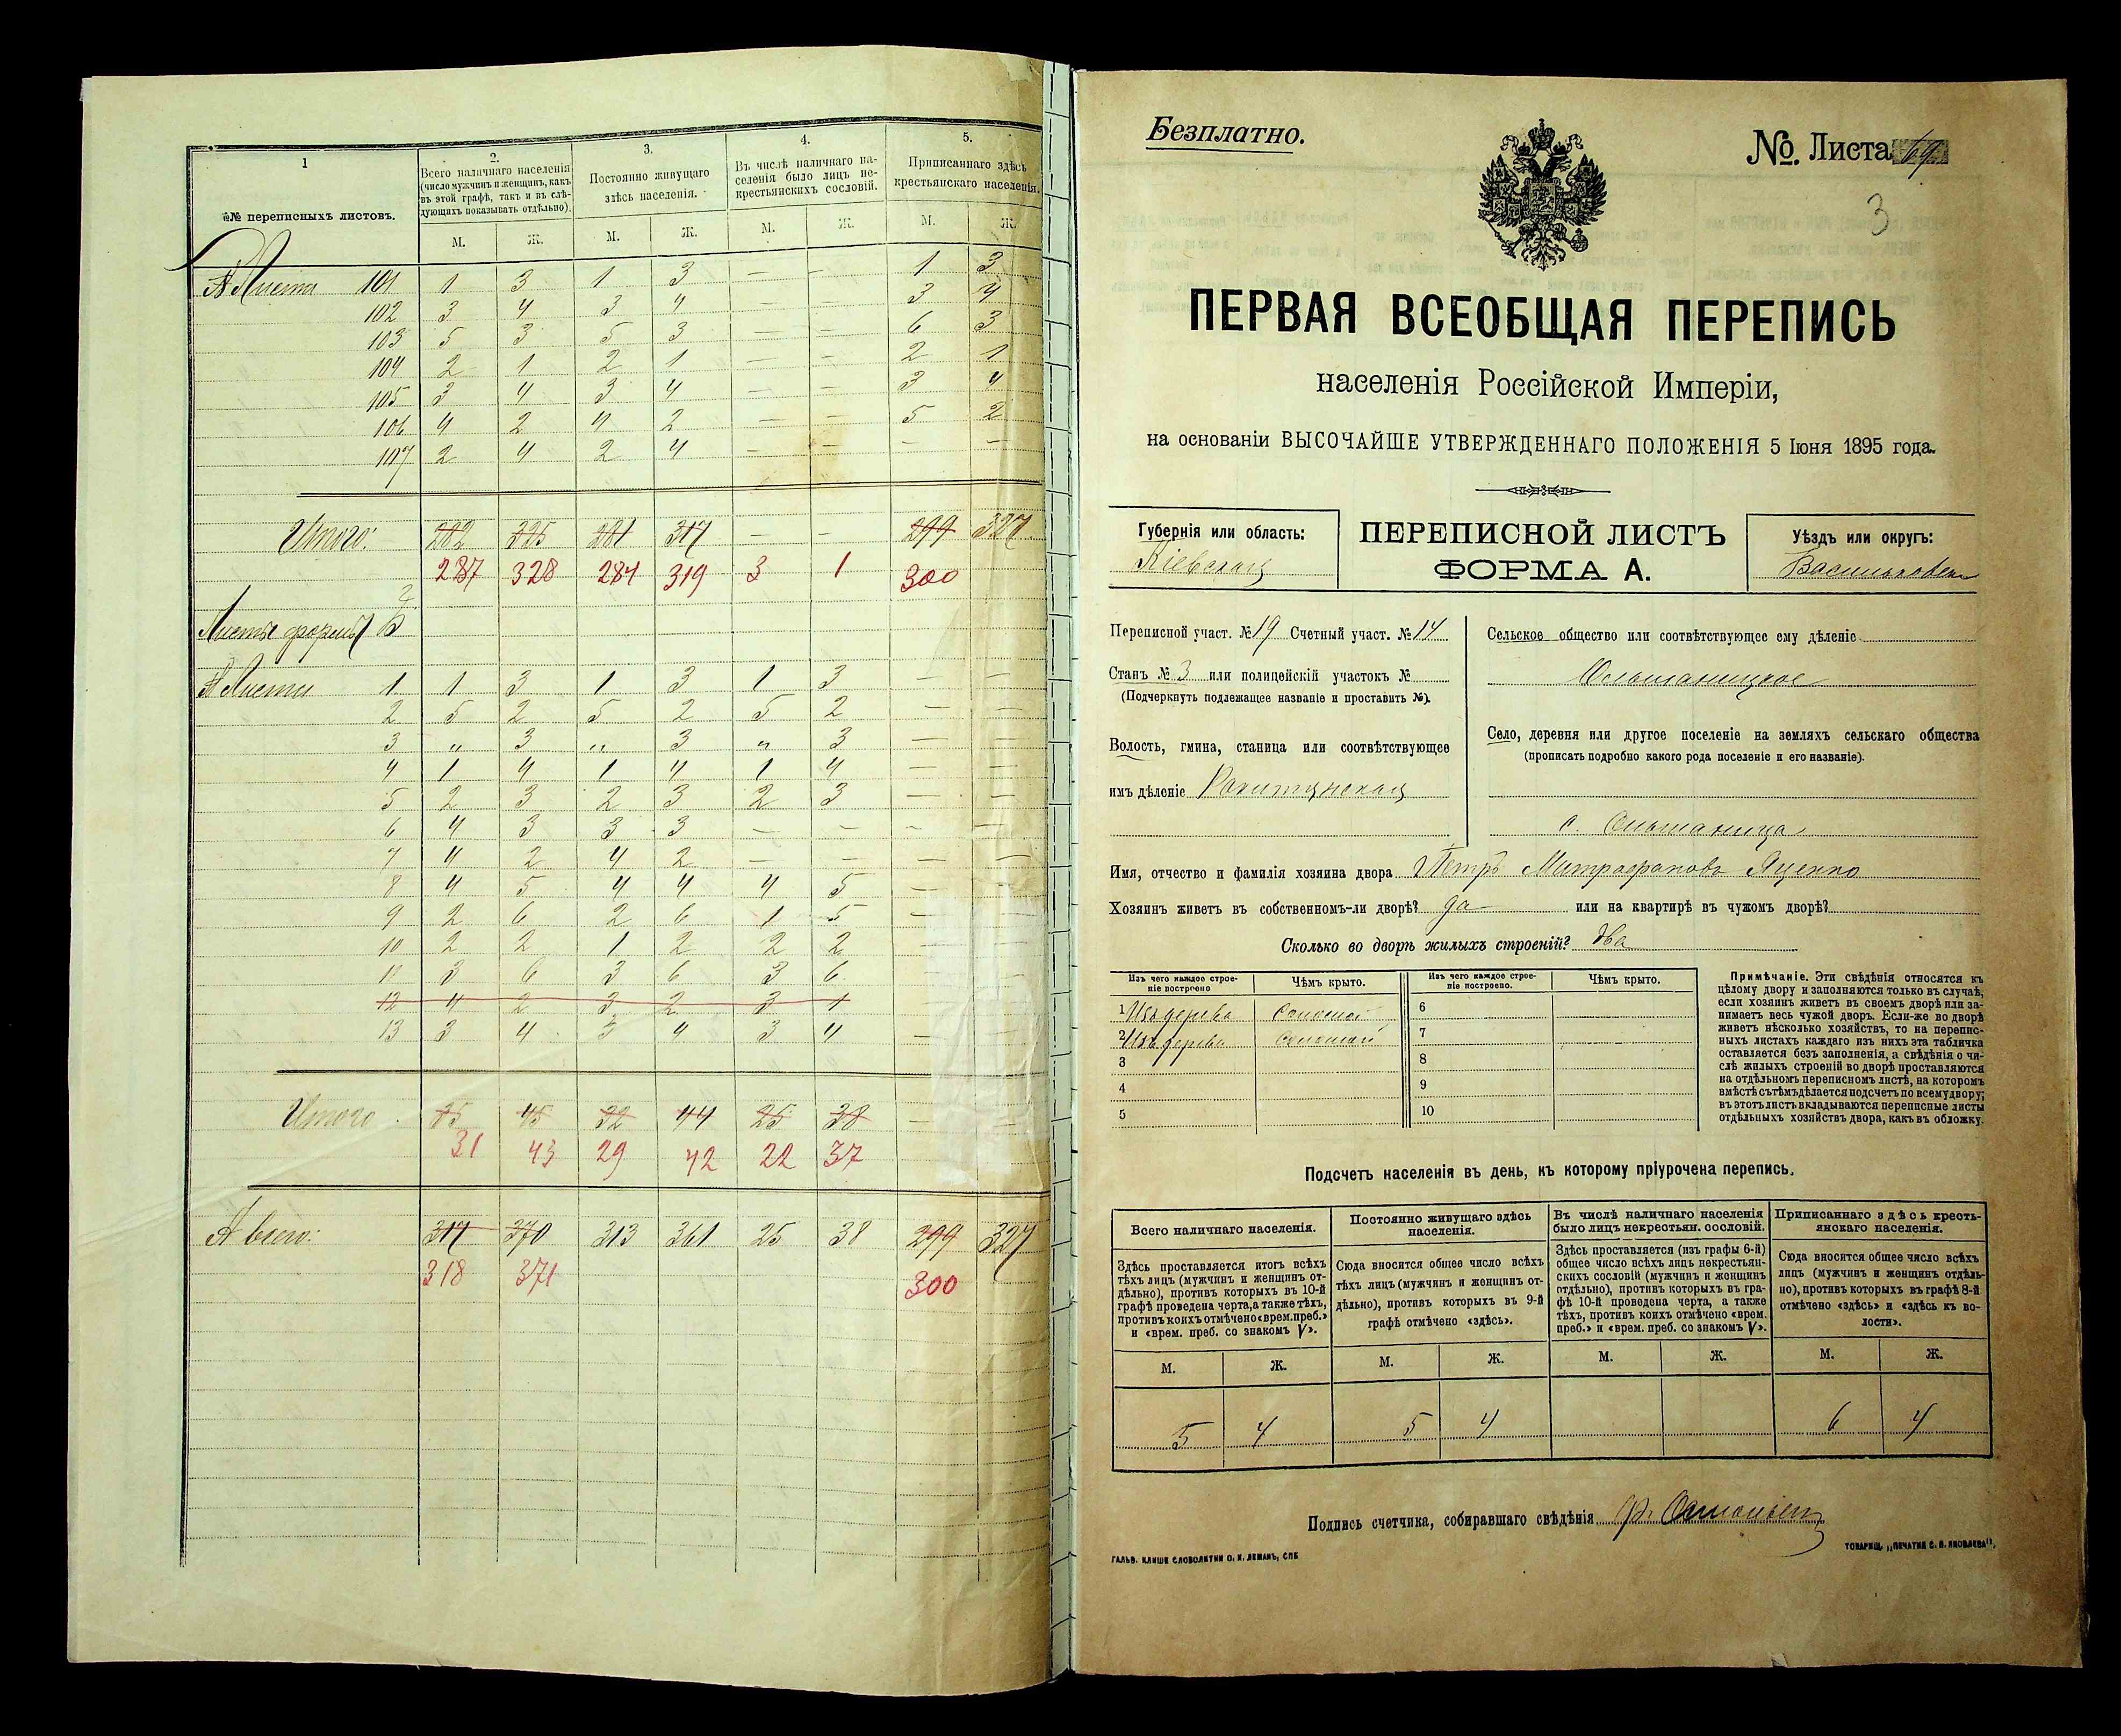 1
2.
3.
4.
5.
№№ переписныхъ листовъ.
Всего наличнаго населенія
(число мужчинъ и женщинъ, какъ
въ этой графѣ, такъ и въ слѣ-
дующихъ показывать отдѣльно).
Постоянно живущаго
здѣсь населенія.
Въ числѣ наличнаго на-
селенія было лицъ не-
крестьянскихъ сословій.
Приписаннаго здѣсь
крестьянскаго населенія.
М. Ж. М. Ж. М. Ж. М. Ж.
А Листа 101 1 3 1 3 — — 1 3
102 3 4 3 4 — — 3 4
103 5 3 5 3 — — 6 3
104 2 1 2 1 — — 2 1
105 3 4 3 4 — — 3 4
106 4 2 4 2 — — 5 2
107 2 4 2 4 — — — —
Итого: 282 325 281 317 — — 299 327
287 328 284 319 3 1 300
Листы формы Б
А Листы 1 1 3 1 3 1 3 — —
2 5 2 5 2 5 2 — —
3 „ 3 „ 3 „ 3 — —
4 1 4 1 4 1 4 — —
5 2 3 2 3 2 3 — —
6 4 3 3 3 — — — —
7 4 2 4 2 — — — —
8 4 5 4 4 4 5 —
9 2 6 2 6 1 5 —
10 2 2 1 2 2 2
11 3 6 3 6 3 6
12 4 2 3 2 3 1
13 3 4 3 4 3 4 —
Итого 35 45 32 44 25 38 — —
31 43 29 42 22 37
А всего: 317 370 313 361 25 38 299 327
318 371 300
Безплатно.
№. Листа 69
3
ПЕРВАЯ ВСЕОБЩАЯ ПЕРЕПИСЬ
населенія Россійской Имперіи,
на основаніи ВЫСОЧАЙШЕ УТВЕРЖДЕННАГО ПОЛОЖЕНІЯ 5 Іюня 1895 года.
Губернія или область:
Кіевская
ПЕРЕПИСНОЙ ЛИСТЪ
ФОРМА А.
Уѣздъ или округъ:
Васильковск
Переписной участ. № 19 Счетный участ. № 14
Станъ № 3 или полицейскій участокъ №
(Подчеркнуть подлежащее названіе и проставить №).
Волость, гмина, станица или соотвѣтствующее
имъ дѣленіе Ракитянская
Сельское общество или соотвѣтствующее ему дѣленіе
Ольшаницкое
Село, деревня или другое поселеніе на земляхъ сельскаго общества
(прописать подробно какого рода поселеніе и его названіе).
с. Ольшаница
Имя, отчество и фамилія хозяина двора Петръ Митрофановъ Яценко
Хозяинъ живетъ въ собственномъ-ли дворѣ? да или на квартирѣ въ чужомъ дворѣ?
Сколько во дворѣ жилыхъ строеній? два
Изъ чего каждое строе-
ніе построено
Чѣмъ крыто.
Изъ чего каждое строе-
ніе построено.
Чѣмъ крыто.
1 Изъ дерева Соломой 6
2 Изъ дерева Соломой 7
3 8
4 9
5 10
Примѣчаніе. Эти свѣдѣнія относятся къ
цѣлому двору и заполняются только въ случаѣ,
если хозяинъ живетъ въ своемъ дворѣ или за-
нимаетъ весь чужой дворъ. Если-же во дворѣ
живетъ нѣсколько хозяйствъ, то на перепис-
ныхъ листахъ каждаго изъ нихъ эта табличка
оставляется безъ заполненія, а свѣдѣнія о чи-
слѣ жилыхъ строеній во дворѣ проставляются
на отдѣльномъ переписномъ листѣ, на которомъ
вмѣстѣ съ тѣмъ дѣлается подсчетъ по всему двору;
въ этотъ листъ вкладываются переписные листы
отдѣльныхъ хозяйствъ двора, какъ въ обложку.
Подсчетъ населенія въ день, къ которому пріурочена перепись.
Всего наличнаго населенія.
Здѣсь проставляется итогъ всѣхъ
тѣхъ лицъ (мужчинъ и женщинъ от-
дѣльно), противъ которыхъ въ 10-й
графѣ проведена черта, а также тѣхъ,
противъ коихъ отмѣчено «врем. преб.»
и «врем. преб. со знакомъ V».
Постоянно живущаго здѣсь
населенія.
Сюда вносится общее число всѣхъ
тѣхъ лицъ (мужчинъ и женщинъ от-
дѣльно), противъ которыхъ въ 9-й
графѣ отмѣчено «здѣсь».
Въ числѣ наличнаго населенія
было лицъ некрестьян. сословій.
Здѣсь проставляется (изъ графы 6-й)
общее число всѣхъ лицъ некрестьян-
скихъ сословій (мужчинъ и женщинъ
отдѣльно), противъ которыхъ въ гра-
фѣ 10-й проведена черта, а также
тѣхъ, противъ коихъ отмѣчено «врем.
преб.» и «врем. преб. со знакомъ V».
Приписаннаго здѣсь кресть-
янскаго населенія.
Сюда вносится общее число всѣхъ
лицъ (мужчинъ и женщинъ отдѣль-
но), противъ которыхъ въ графѣ 8-й
отмѣчено «здѣсь» и «здѣсь къ во-
лости».
М. Ж. М. Ж. М. Ж. М. Ж.
5 4 5 4 6 4
Подпись счетчика, собиравшаго свѣдѣнія
ГАЛЬВ. КЛИШЕ СЛОВОЛИТНИ О. И. ЛЕМАНЪ, СПБ
ТОВАРИЩ. „ПЕЧАТНЯ С. П. ЯКОВЛЕВА".